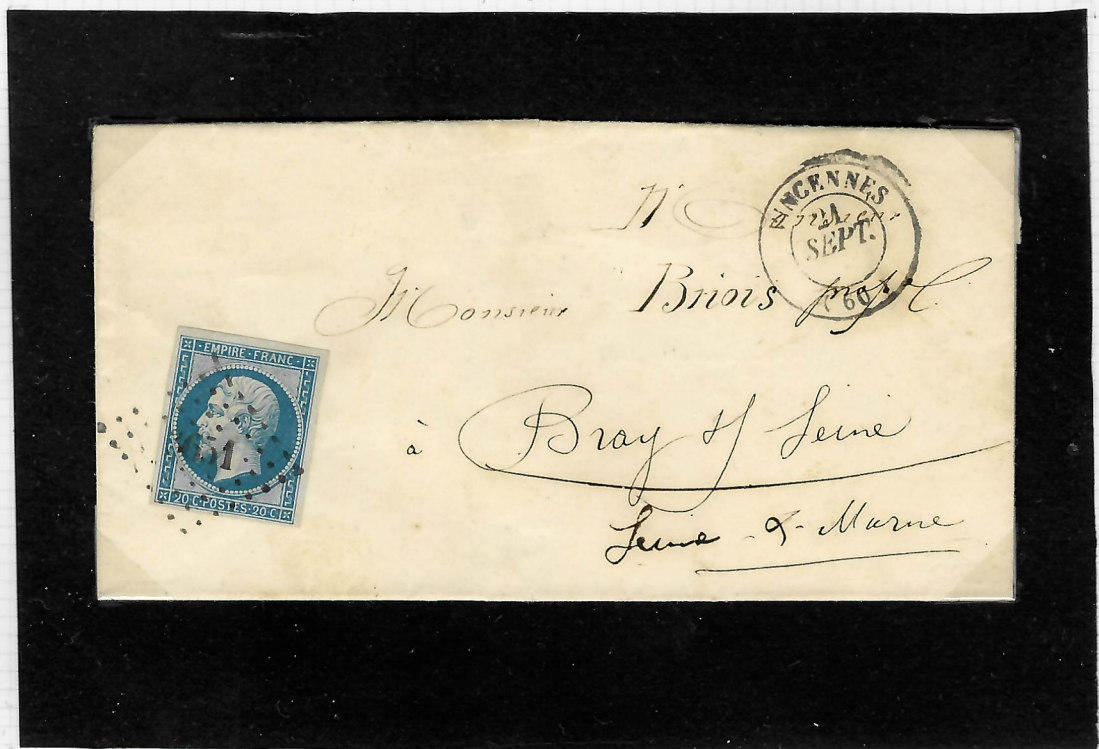 VINCENNES
21
SEPT.
(60)
Monsieur Briois
à Bray s/ Seine
Seine & Marne
EMPIRE · FRANC ·
20 C · POSTES · 20 C